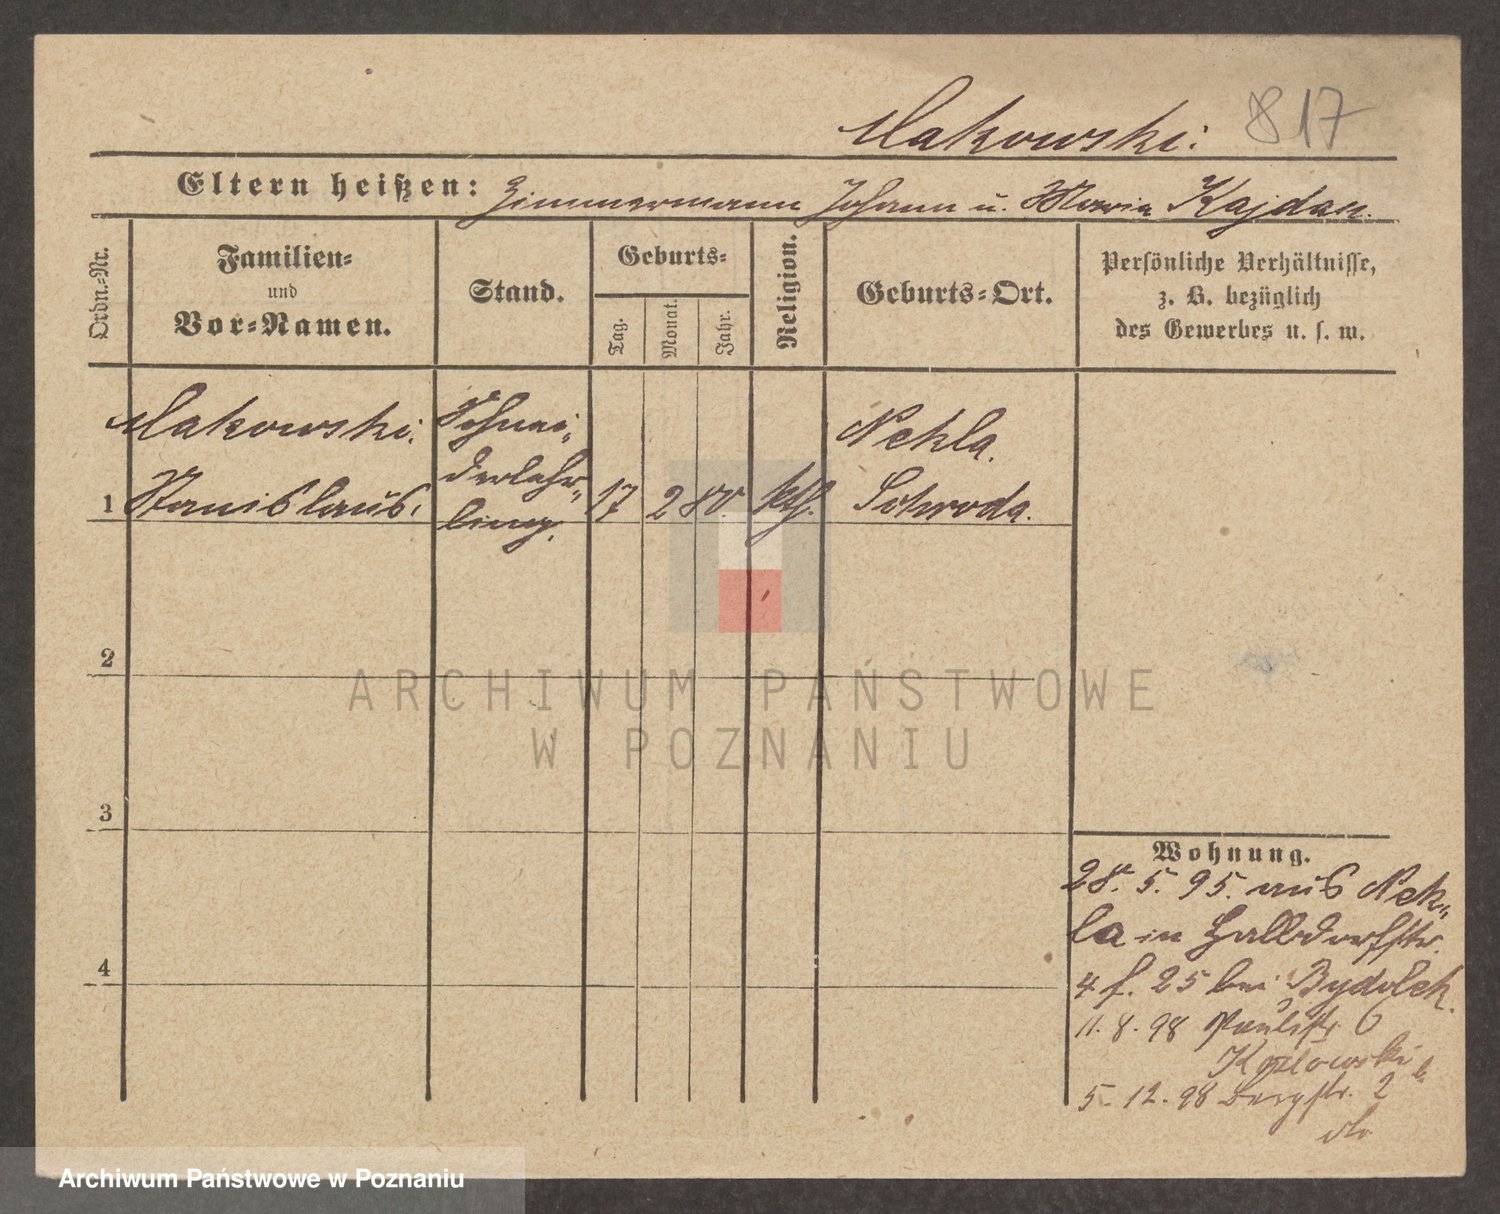 Makowski.
817
Eltern heißen: Zimmermann Johann u. Maria Kajdan.
Ordn.-Nr.
Familien-
und
Vor-Namen.
Stand.
Geburts-
Tag.
Monat.
Jahr.
Religion.
Geburts-Ort.
Persönliche Verhältnisse,
z. B. bezüglich
des Gewerbes u. s. w.
Makowski.
Schnei-
Nekla.
1 Stanislaus.
derlehr-
17 2 80 kth. Schroda.
ling.
2
ARCHIWUM PAŃSTWOWE
W POZNANIU
3
4
Wohnung.
28. 5. 95. aus Nek-
la in Halbdorfstr.
4 f. 25 bei Bydolek.
11. 8. 98 Paulistr. 6
Kozlowski
5 12. 98 Bergstr. 2
Archiwum Państwowe w Poznaniu